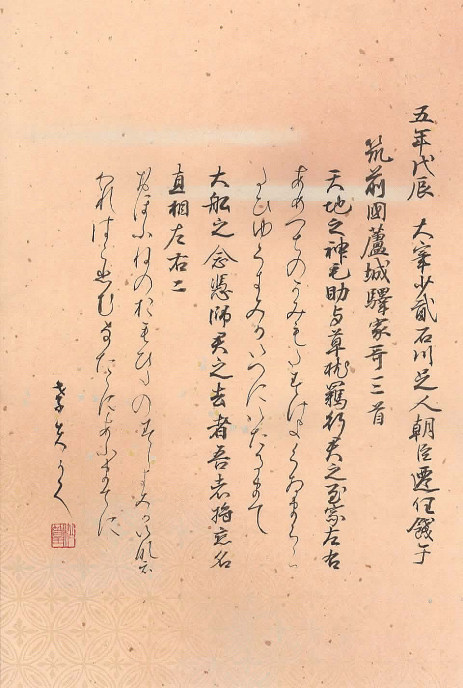 五年戊辰 大宰少貳石川足人朝臣遷任餞于
筑前國蘆城驛家哥三首
天地之神毛助与草枕羈行君之至家左右
あめつちのかみもたすけよくさまくら
たひゆくきみかいへにいたるまて
大船之念憑師君之去者吾者将恋名
直相左右二
おほふねのおもひたのみしきみかいなは
われはこひむなたたにあふまてに